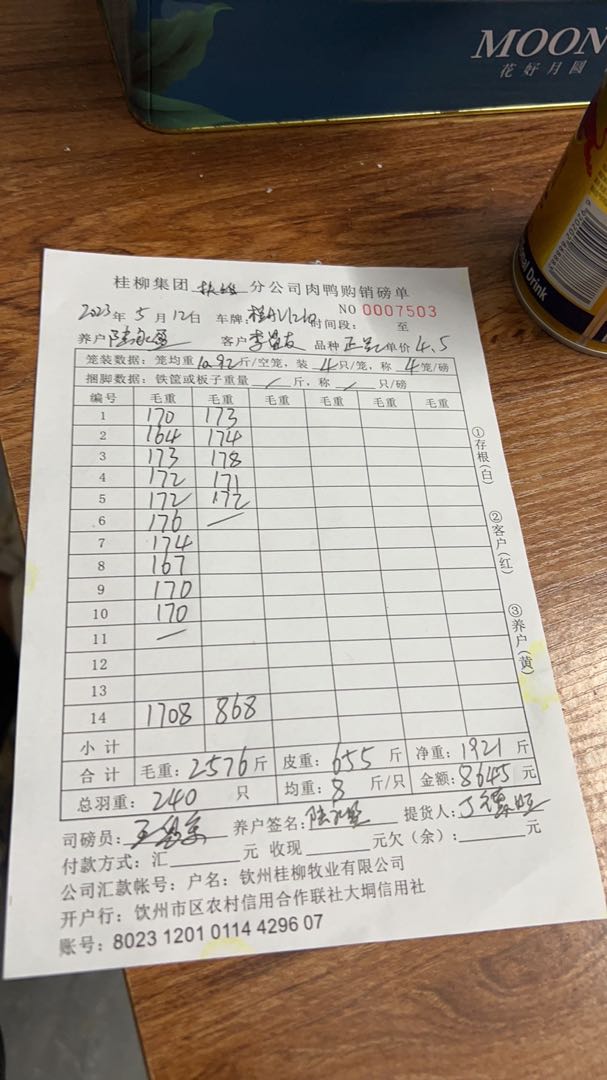 MOON
花好月圆
nal Drink
桂柳集团 分公司肉鸭购销磅单
2023年5月12日 车牌: 时间段: 至
NO 0007503
养户 客户 品种 单价 4.5
笼装数据: 笼均重10.92斤/空笼, 装4只/笼, 称4笼/磅
捆脚数据: 铁筐或板子重量/斤, 称/只/磅
编号 毛重 毛重 毛重 毛重 毛重
1 170 173
2 164 174
3 173 178
4 172 171
5 172 172
6 176 /
7 174
8 167
9 170
10 170
11 /
12
13
14 1708 868
小计
合计 毛重: 2576斤 皮重: 655斤 净重: 1921斤
总羽重: 240只 均重: 8斤/只 金额: 8645元
司磅员: 养户签名: 提货人:
付款方式: 汇 元 收现 元欠(余): 元
公司汇款帐号: 户名: 钦州桂柳牧业有限公司
开户行: 钦州市区农村信用合作联社大垌信用社
账号: 8023 1201 0114 4296 07
①存根(白)
②客户(红)
③养户(黄)